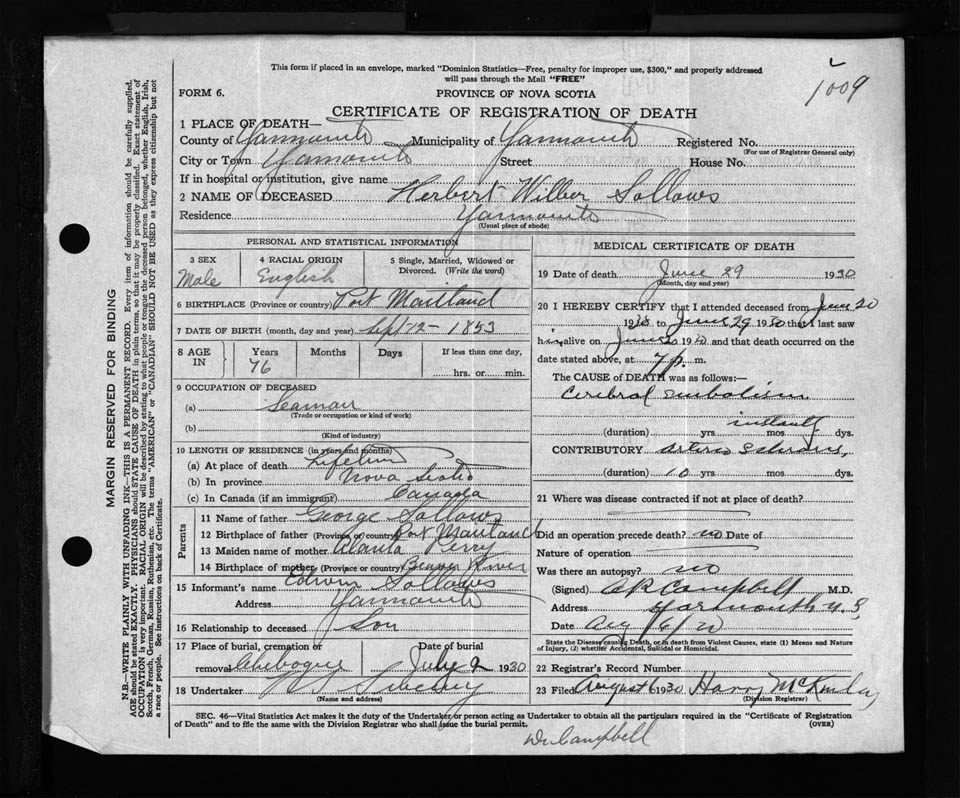 This form if placed in an envelope, marked "Dominion Statistics—Free, penalty for improper use, $300," and properly addressed
will pass through the Mail "FREE"
1009
FORM 6.
PROVINCE OF NOVA SCOTIA
CERTIFICATE OF REGISTRATION OF DEATH
1 PLACE OF DEATH—
County of Yarmouth Municipality of Yarmouth Registered No.
(For use of Registrar General only)
City or Town Yarmouth Street House No.
If in hospital or institution, give name
2 NAME OF DECEASED Herbert Wilber Sollows
Residence Yarmouth
(Usual place of abode)
MARGIN RESERVED FOR BINDING
N.B.—WRITE PLAINLY WITH UNFADING INK—THIS IS A PERMANENT RECORD. Every item of information should be carefully supplied.
AGE should be stated EXACTLY. PHYSICIANS should STATE CAUSE OF DEATH in plain terms, so that it may be properly classified. Exact statement of
OCCUPATION is very important. RACIAL ORIGIN will be described by stating to what people or tongue the deceased person belonged, whether English, Irish,
Scotch, French, German, Russian, Ruthenian, etc. The terms "AMERICAN" or "CANADIAN" SHOULD NOT BE USED as they express citizenship but not
a race or people. See instructions on back of Certificate.
PERSONAL AND STATISTICAL INFORMATION
3 SEX
Male
4 RACIAL ORIGIN
English
5 Single, Married, Widowed or
Divorced. (Write the word)
6 BIRTHPLACE (Province or country) Port Maitland
7 DATE OF BIRTH (month, day and year) Sept 12 - 1853
8 AGE
IN
Years
76
Months
Days
If less than one day,
hrs. or min.
9 OCCUPATION OF DECEASED
(a) Seaman
(Trade or occupation or kind of work)
(b)
(Kind of industry)
10 LENGTH OF RESIDENCE (in years and months)
(a) At place of death Lifetime
(b) In province Nova Scotia
(c) In Canada (if an immigrant) Canada
Parents
11 Name of father George Sollows
12 Birthplace of father (Province or country) Port Maitland
13 Maiden name of mother Perry
14 Birthplace of mother (Province or country) Beaver River
15 Informant's name Edwin Sollows
Address Yarmouth
16 Relationship to deceased Son
17 Place of burial, cremation or
removal Chebogue
Date of burial
July 2 1930
18 Undertaker
(Name and address)
MEDICAL CERTIFICATE OF DEATH
19 Date of death June 29 1930
(Month, day and year)
20 I HEREBY CERTIFY that I attended deceased from June 20
1930 to June 29 1930 that I last saw
him alive on June 1930 and that death occurred on the
date stated above, at 7 p. m.
The CAUSE of DEATH was as follows:—
Cerebral embolism
(duration) yrs. mos instantly dys.
CONTRIBUTORY Arterio Sclerosis,
(duration) 10 yrs. mos. dys.
21 Where was disease contracted if not at place of death?
Did an operation precede death? no Date of
Nature of operation
Was there an autopsy? no
(Signed) Campbell M.D.
Address Yarmouth N.S
Date Aug 6/30
State the Disease causing Death, or in death from Violent Causes, state (1) Means and Nature
of Injury, (2) whether Accidental, Suicidal or Homicidal.
22 Registrar's Record Number
23 Filed August 6 1930 Harry McKinley
(Division Registrar)
SEC. 46—Vital Statistics Act makes it the duty of the Undertaker or person acting as Undertaker to obtain all the particulars required in the "Certificate of Registration
of Death" and to file the same with the Division Registrar who shall issue the burial permit.
(OVER)
Dr Campbell